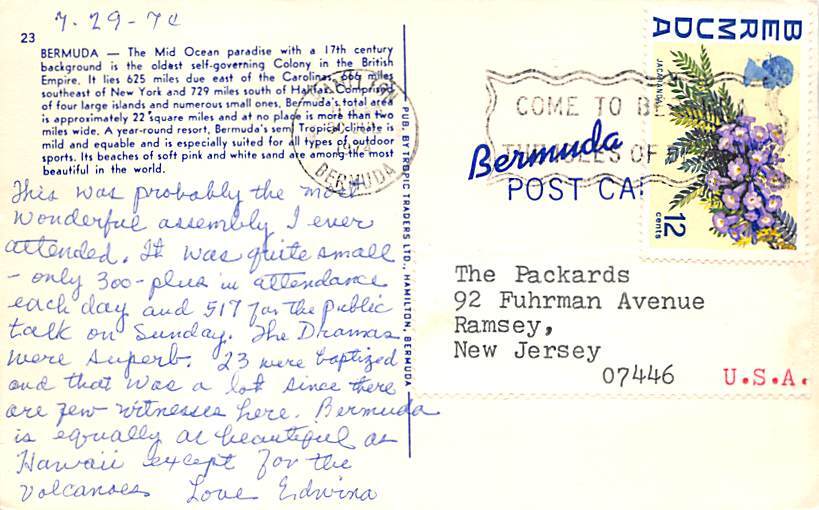 7-29-74
23
BERMUDA — The Mid Ocean paradise with a 17th century
background is the oldest self-governing Colony in the British
Empire. It lies 625 miles due east of the Carolinas, 666 miles
southeast of New York and 729 miles south of Halifax. Comprised
of four large islands and numerous small ones, Bermuda's total area
is approximately 22 square miles and at no place is more than two
miles wide. A year-round resort, Bermuda's semi Tropical climate is
mild and equable and is especially suited for all types of outdoor
sports. Its beaches of soft pink and white sand are among the most
beautiful in the world.
This was probably the most
wonderful assembly I ever
attended. It was quite small
- only 300-plus in attendance
each day and 517 for the public
talk on Sunday. The Dramas
were superb. 23 were baptized
and that was a lot since there
are few witnesses here. Bermuda
is equally as beautiful as
Hawaii except for the
volcanoes Love Edwina
PUB. BY TROPIC TRADERS LTD., HAMILTON, BERMUDA
HAMILTON
BERMUDA
COME TO BE
OF
BERMUDA
JACARANDA
12
cents
Bermuda
POST CA
The Packards
92 Fuhrman Avenue
Ramsey,
New Jersey
07446 U.S.A.